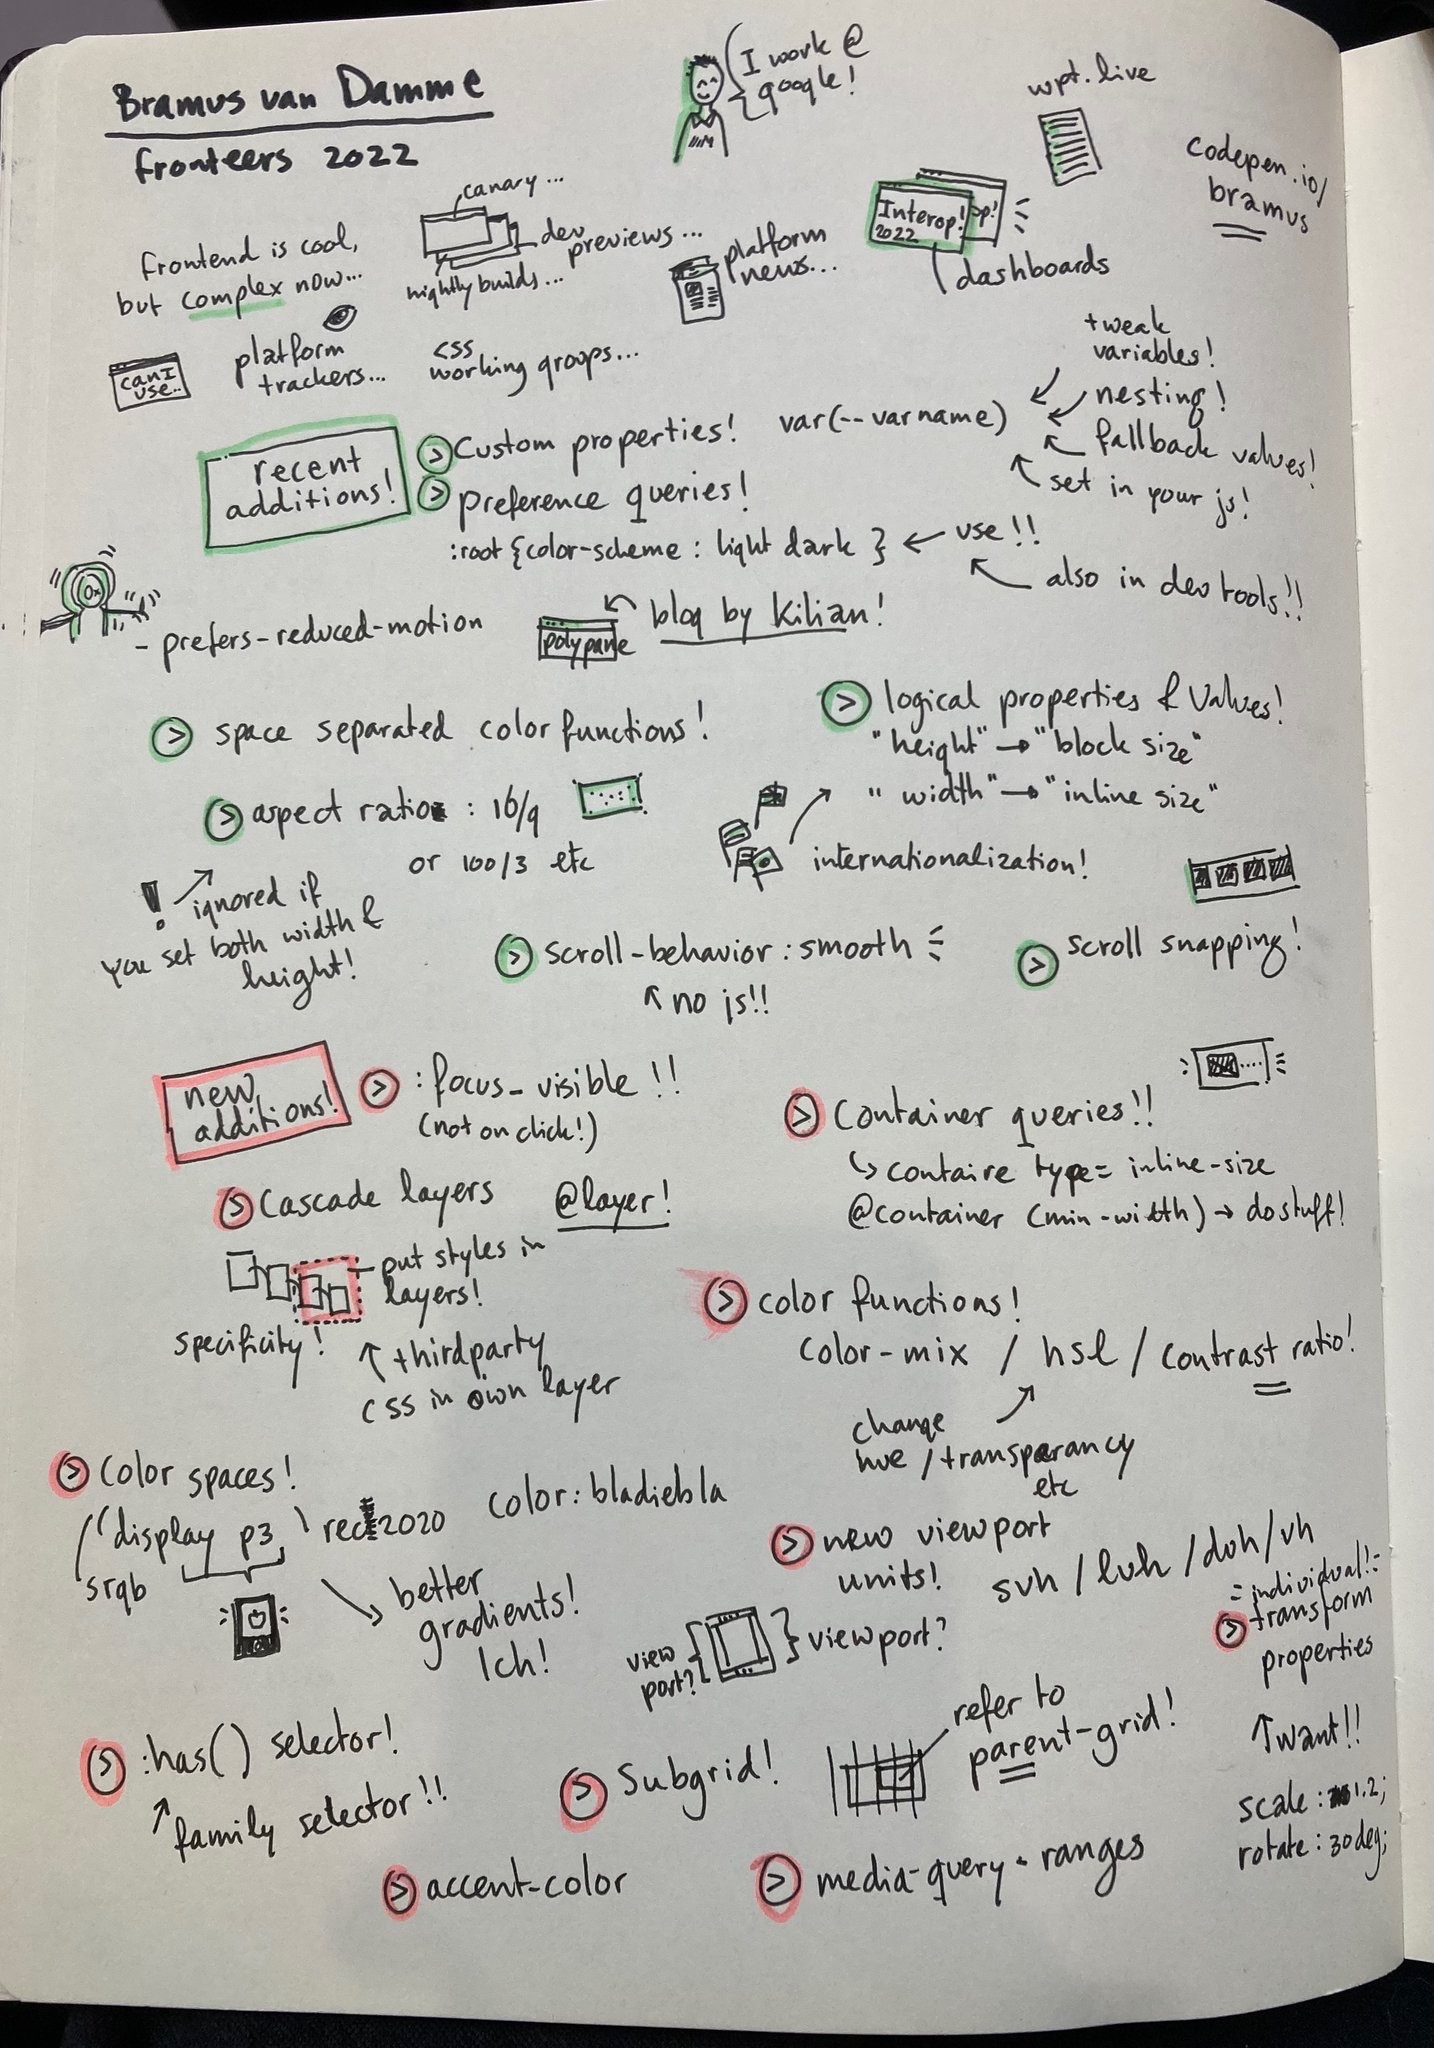 Bramus van Damme
fronteers 2022
I work @
google!
wpt.live
codepen.io/
bramus
frontend is cool,
but complex now...
canary...
dev
previews...
nightly builds...
platform
news...
Interop!
2022
op!
dashboards
can I
use..
platform
trackers...
css
working groups...
recent
additions!
> Custom properties! var(--varname)
+weak
variables!
nesting!
fallback values!
set in your js!
> preference queries!
:root {color-scheme: light dark } ← use!!
also in devtools!!
- prefers-reduced-motion
polypane
blog by Kilian!
> space separated color functions!
> logical properties & Values!
"height" → "block size"
"width" → "inline size"
internationalization!
> aspect ratio : 16/9
or 100/3 etc
! ignored if
you set both width &
height!
> scroll-behavior: smooth
no js!!
> scroll snapping!
new
additions!
> :focus-visible!!
(not on click!)
> Container queries!!
↳ containe type= inline-size
@container (min-width) → do stuff!
> Cascade layers @layer!
put styles in
layers!
specificity!
↑ thirdparty
css in own layer
> color functions!
color-mix / hsl / contrast ratio!
change
hue / transparancy
etc
> Color spaces!
display p3 rec 2020 color: bladiebla
srgb
better
gradients!
lch!
> new viewport
units! svh / lvh / dvh / vh
view
port?
viewport?
individual!
> transform
properties
↑ want!!
scale: 1.2;
rotate: 30deg;
> :has() selector!
family selector!!
> Subgrid!
refer to
parent-grid!
> accent-color
> media-query-ranges